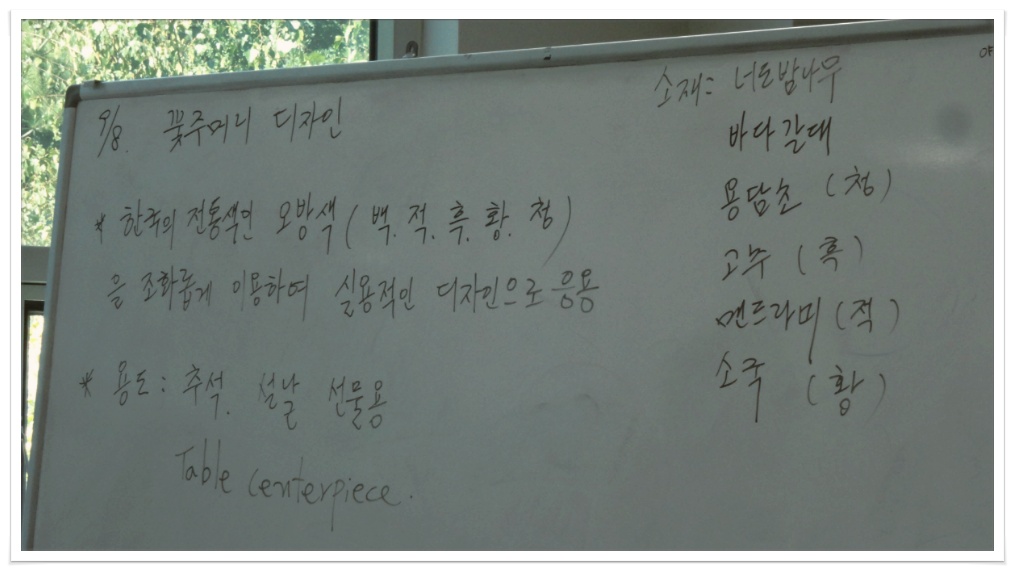 9/8. 꽃주머니 디자인
* 한국의 전통색인 오방색 (백. 적. 흑. 황. 청)
을 조화롭게 이용하여 실용적인 디자인으로 응용
* 용도 : 추석. 설날 선물용
Table centerpiece.
소재: 너도밤나무
바다갈대
용담초 (청)
고추 (흑)
맨드라미 (적)
소국 (황)